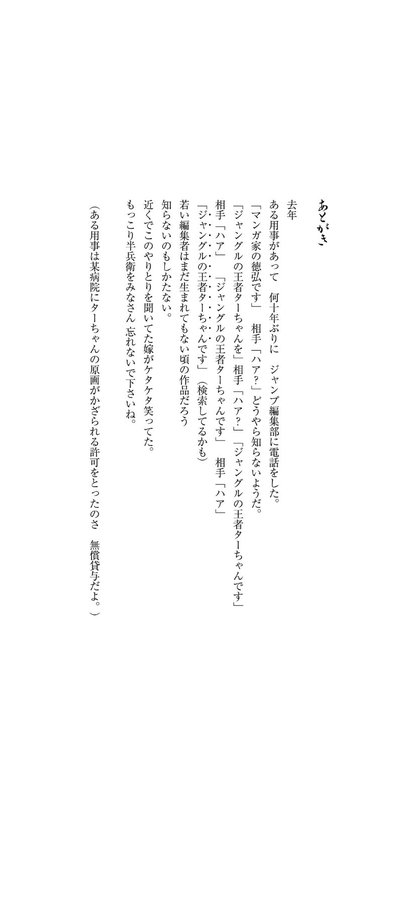 あとがき
去年
ある用事があって　何十年ぶりに　ジャンプ編集部に電話をした。
「マンガ家の徳弘です」　相手「ハア？」どうやら知らないようだ。
「ジャングルの王者ターちゃんを」相手「ハア？」「ジャングルの王者ターちゃんです」
相手「ハア」　「ジャングルの王者ターちゃんです」　相手「ハア」
「ジャングルの王者ターちゃんです」（検索してるかも）
若い編集者はまだ生まれてもない頃の作品だろう
知らないのもしかたない。
近くでこのやりとりを聞いてた嫁がケタケタ笑ってた。
もっこり半兵衛をみなさん 忘れないで下さいね。
（ある用事は某病院にターちゃんの原画がかざられる許可をとったのさ　無償貸与だよ。）